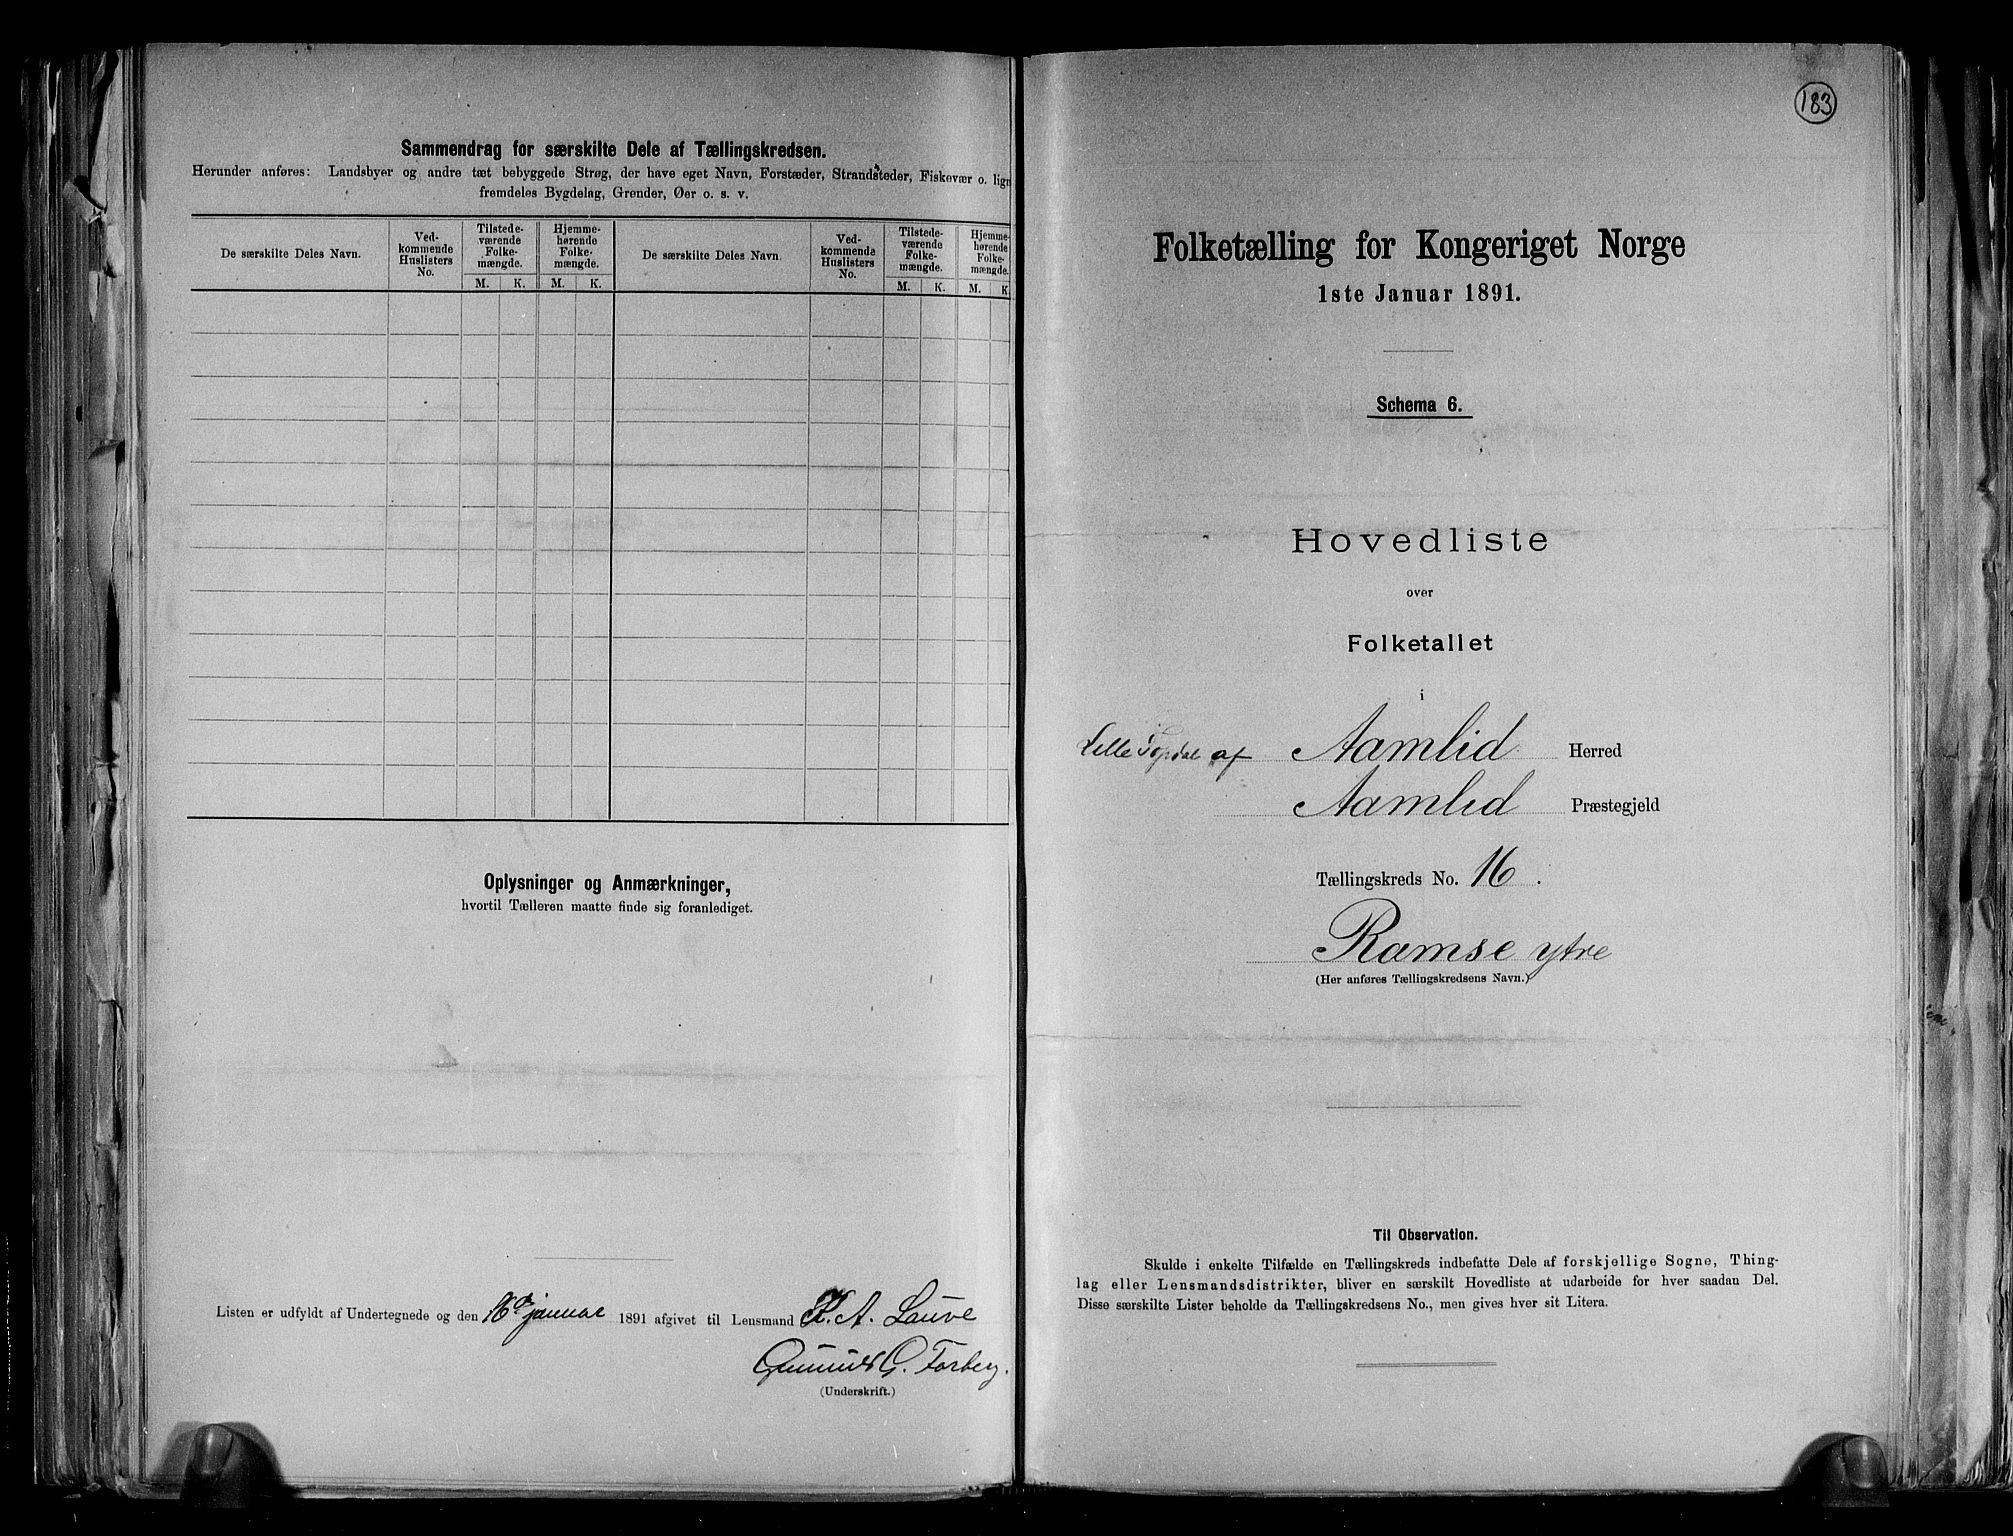 Sammendrag for særskilte Dele af Tællingskredsen.
Herunder anføres: Landsbyer og andre tæt bebyggede Strøg, der have eget Navn, Forstæder, Strandsteder, Fiskevær o. lign
fremdeles Bygdelag, Grender, Øer o. s. v.
De særskilte Deles Navn.
Ved-
kommende
Huslisters
No.
Tilstede-
værende
Folke-
mængde.
Hjemme-
hørende
Folke-
mængde.
De særskilte Deles Navn.
Ved-
kommende
Huslisters
No.
Tilstede-
værende
Folke-
mængde.
Hjemme-
hørende
Folke-
mængde.
M. K. M. K. M. K. M. K
Oplysninger og Anmærkninger,
hvortil Tælleren maatte finde sig foranlediget.
Listen er udfyldt af Undertegnede og den 16de januar 1891 afgivet til Lensmand K. A. Lauve
G. Forberg.
(Underskrift.)
183
Folketælling for Kongeriget Norge
1ste Januar 1891.
Schema 6.
Hovedliste
over
Folketallet
i
Lille Topdal af Aamlid Herred
Aamlid Præstegjeld
Tællingskreds No. 16.
Ramse ytre
(Her anføres Tællingskredsens Navn.)
Til Observation.
Skulde i enkelte Tilfælde en Tællingskreds indbefatte Dele af forskjellige Sogne, Thing-
lag eller Lensmandsdistrikter, bliver en særskilt Hovedliste at udarbeide for hver saadan Del.
Disse særskilte Lister beholde da Tællingskredsens No., men gives hver sit Litera.